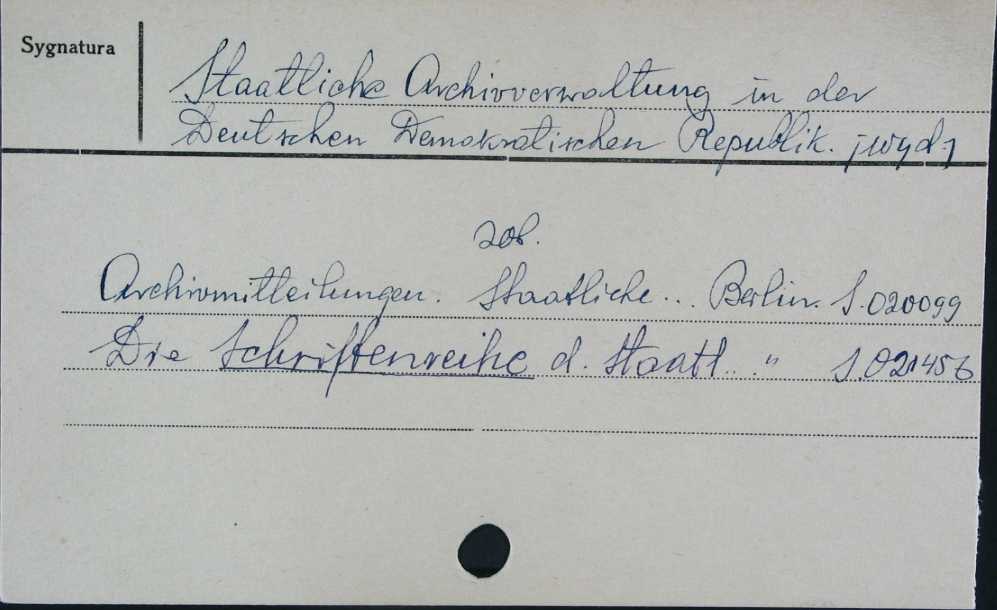 Sygnatura
Staatliche Archivverwaltung in der
Deutschen Demokratischen Republik. [wyd.]
zob.
Archivmitteilungen. Staatliche... Berlin. S.020099
Die Schriftenreihe d. Staatl. " S.021456